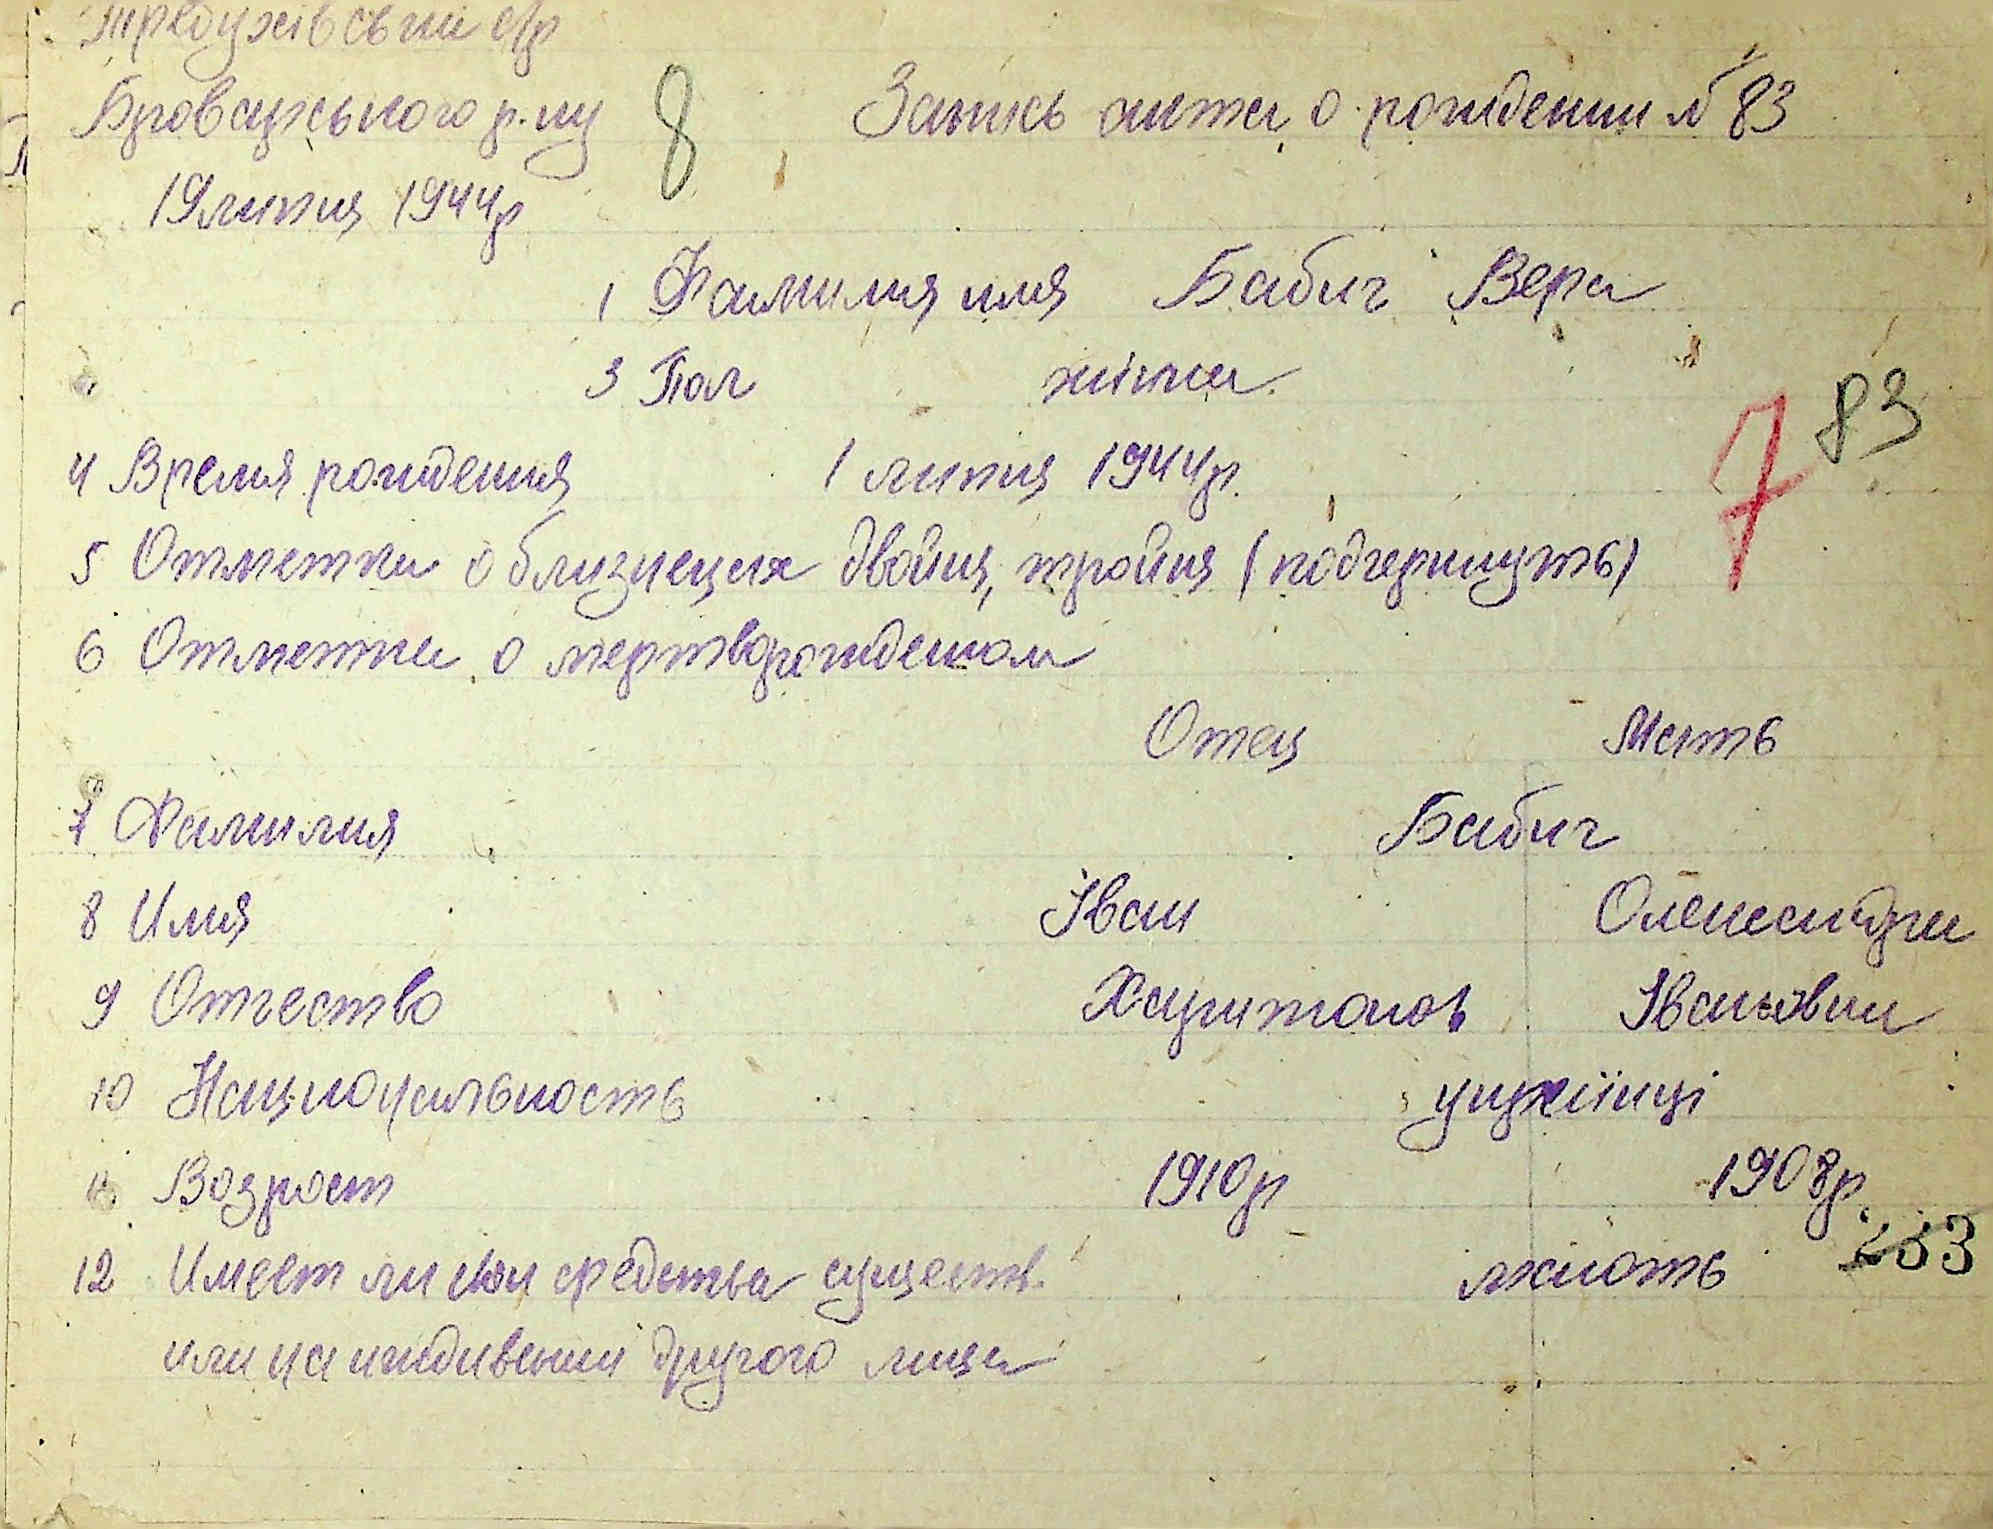 Требухівський с/р
Броварського р.ну
8
Запись акта о рождении № 83
19 липня 1944р
1 Фамилия имя Бабич Вера
3 Пол жінка
83
7
4 Время рождения 1 липня 1944р.
5 Отметка о близнецах двойня, тройня (подчеркнуть)
6 Отметка о мертворожденом
Отец Мать
7 Фамилия Бабич
8 Имя Іван Олександра
9 Отчество Харитонов Івановна
10 Национальность українці
11 Возраст 1910р 1908р
12 Имеет ли свои средства существ. мають
233
или на иждивении другого лица